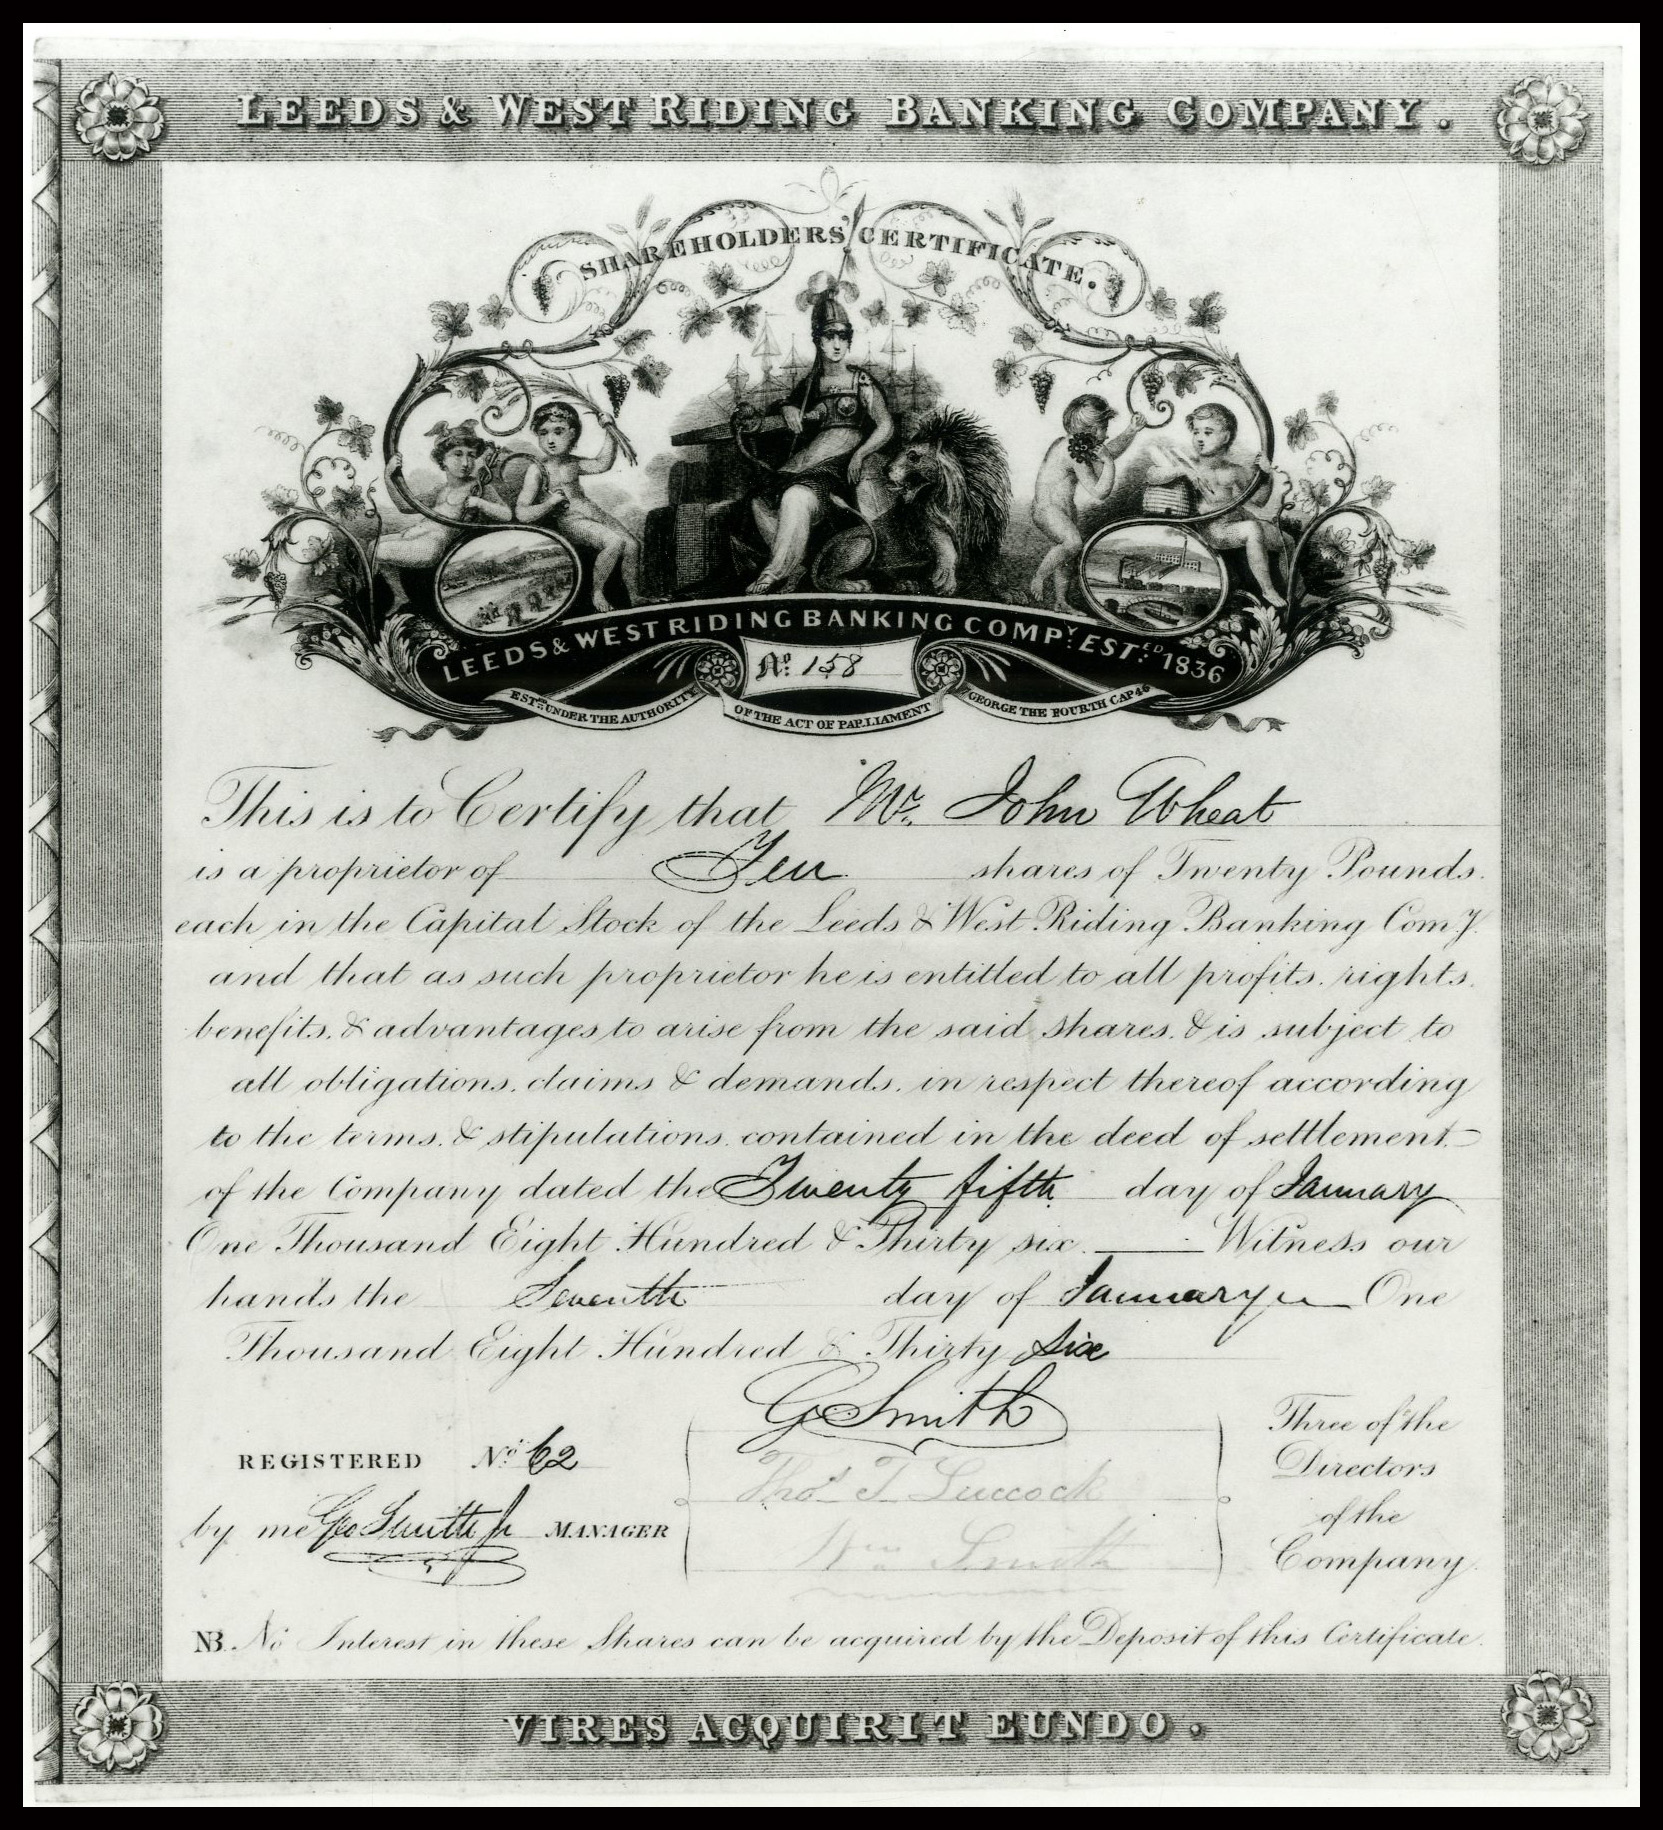 LEEDS & WEST RIDING BANKING COMPANY.
SHAREHOLDERS' CERTIFICATE.
LEEDS & WEST RIDING BANKING COMPY. ESTED. 1836
No. 158
ESTED. UNDER THE AUTHORITY OF THE ACT OF PARLIAMENT 7 GEORGE THE FOURTH CAP 46
This is to Certify that Mr. John Wheat
is a proprietor of Ten shares of Twenty Pounds.
each in the Capital Stock of the Leeds & West Riding Banking Com.y.
and that as such proprietor he is entitled to all profits, rights,
benefits, & advantages to arise from the said shares, & is subject to
all obligations, claims & demands, in respect thereof according
to the terms, & stipulations, contained in the deed of settlement
of the Company dated the Twenty fifth day of January
One Thousand Eight Hundred & Thirty six. Witness our
hands the Seventh day of January One
Thousand Eight Hundred & Thirty Six
G Smith
Thos. T Luccock
Wm Smith
Three of the
Directors
of the
Company.
REGISTERED No. 62
by me Geo Smith Jr MANAGER
NB. No Interest in these Shares can be acquired by the Deposit of this Certificate.
VIRES ACQUIRIT EUNDO.